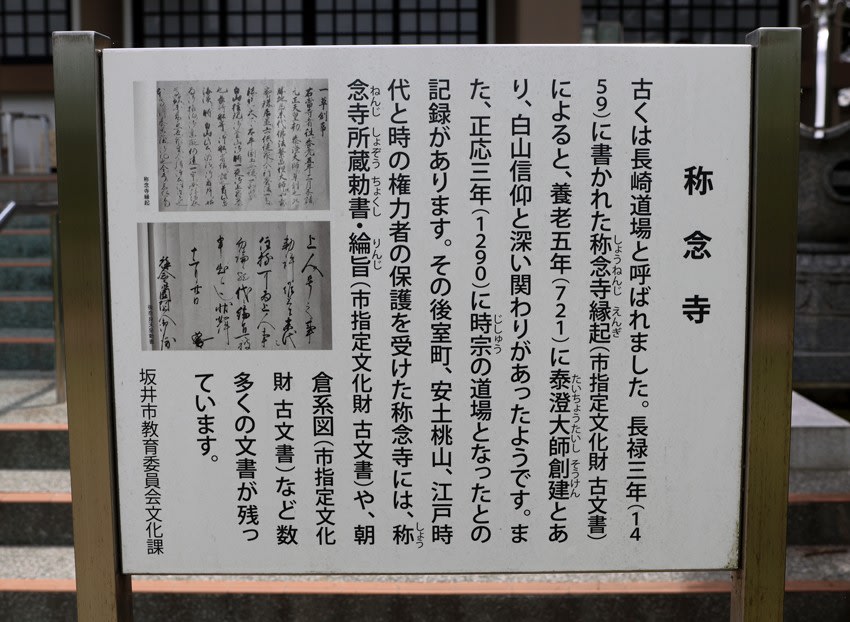 称念寺
古くは長崎道場と呼ばれました。長禄三年(14
59)に書かれた称念寺縁起(市指定文化財 古文書)
しょうねんじ えんぎ
によると、養老五年(721)に泰澄大師創建とあ
たいちょうたいし そうけん
り、白山信仰と深い関わりがあったようです。ま
た、正応三年(1290)に時宗の道場となったとの
じしゅう
記録があります。その後室町、安土桃山、江戸時
代と時の権力者の保護を受けた称念寺には、称
しょう
念寺所蔵勅書・綸旨(市指定文化財 古文書)や、朝
ねんじ しょぞう ちょくし りんじ
倉系図(市指定文化
財 古文書)など数
多くの文書が残っ
ています。
坂井市教育委員会文化課
称念寺縁起